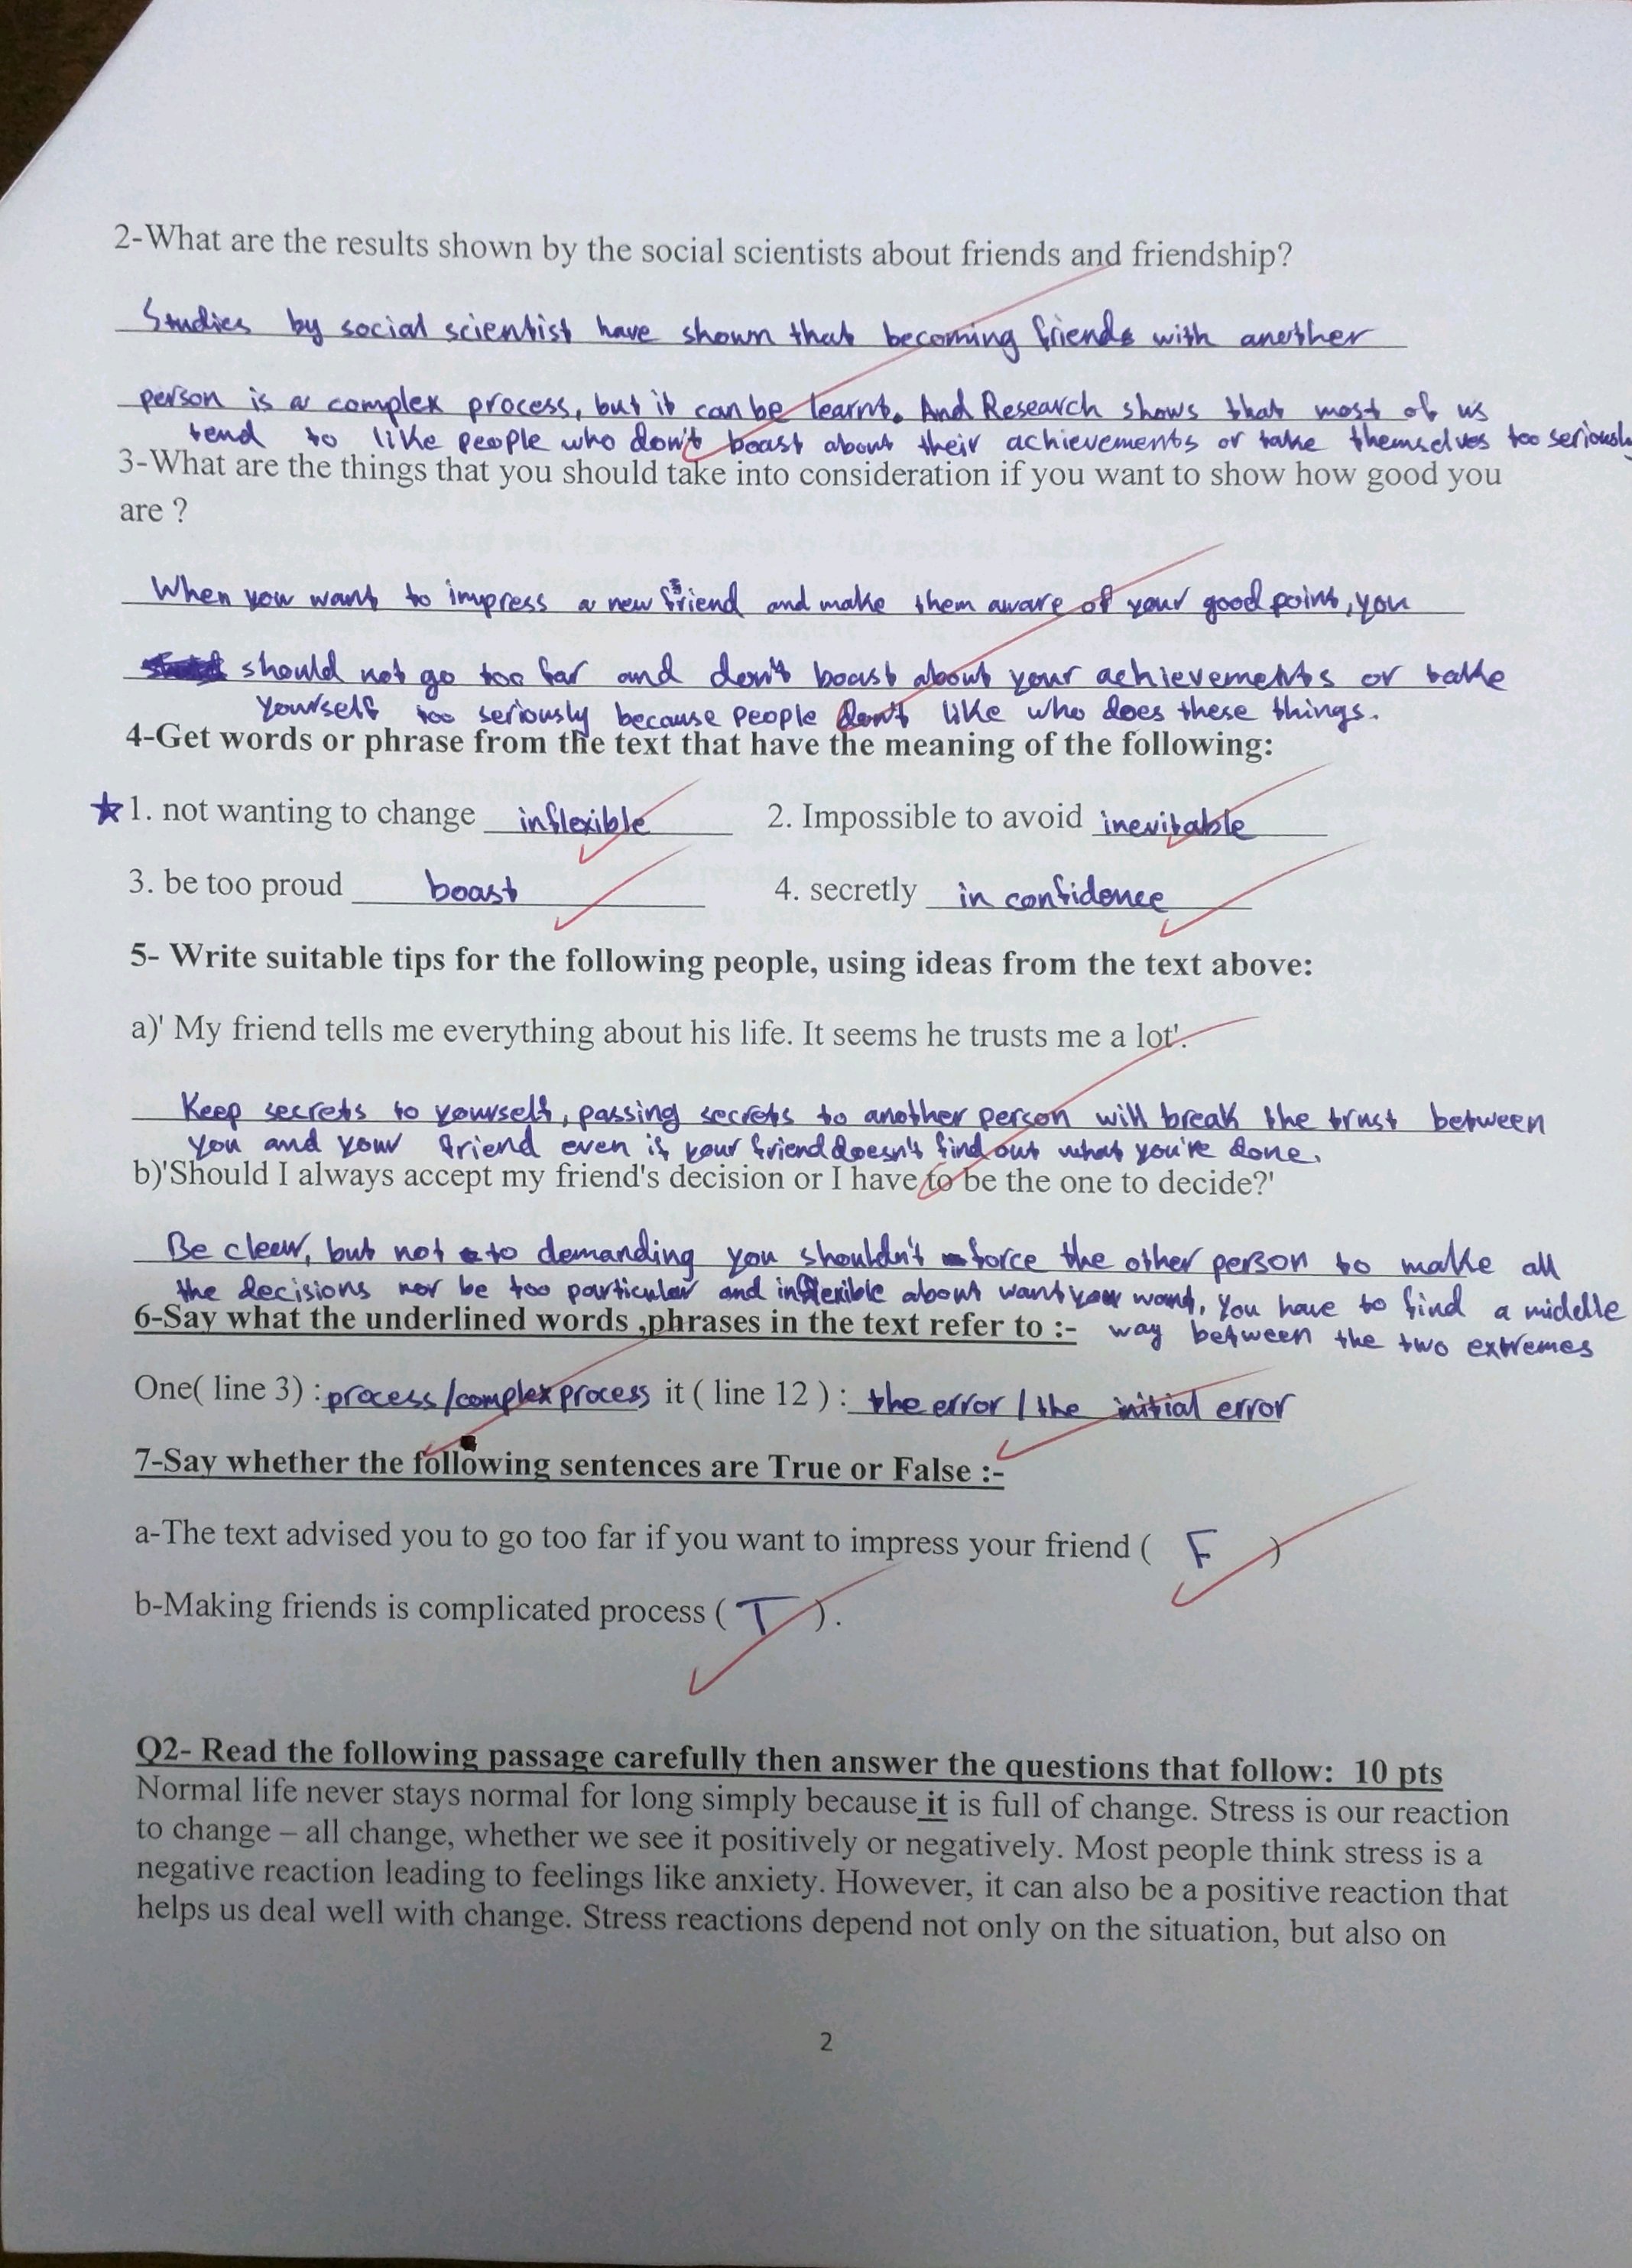 2-What are the results shown by the social scientists about friends and friendship?
Studies by social scientist have shown that becoming friends with another
person is a complex process, but it can be learnt. And Research shows that most of us
tend to like people who don't boast about their achievements or take themselves too seriously
3-What are the things that you should take into consideration if you want to show how good you
are ?
When you want to impress a new friend and make them aware of your good point, you
should not go too far and don't boast about your achievements or take
yourself too seriously because people don't like who does these things.
4-Get words or phrase from the text that have the meaning of the following:
★1. not wanting to change inflexible 2. Impossible to avoid inevitable
3. be too proud boast 4. secretly in confidence
5- Write suitable tips for the following people, using ideas from the text above:
a)' My friend tells me everything about his life. It seems he trusts me a lot'.
Keep secrets to yourself, passing secrets to another person will break the trust between
you and your friend even if your friend doesn't find out what you're done.
b)'Should I always accept my friend's decision or I have to be the one to decide?'
Be clear, but not to demanding you shouldn't force the other person to make all
the decisions nor be too particular and inflexible about want your want, you have to find a middle
6-Say what the underlined words ,phrases in the text refer to :- way between the two extremes
One( line 3) : process/complex process it ( line 12 ) : the error / the initial error
7-Say whether the following sentences are True or False :-
a-The text advised you to go too far if you want to impress your friend ( F )
b-Making friends is complicated process ( T ).
Q2- Read the following passage carefully then answer the questions that follow: 10 pts
Normal life never stays normal for long simply because it is full of change. Stress is our reaction
to change – all change, whether we see it positively or negatively. Most people think stress is a
negative reaction leading to feelings like anxiety. However, it can also be a positive reaction that
helps us deal well with change. Stress reactions depend not only on the situation, but also on
2